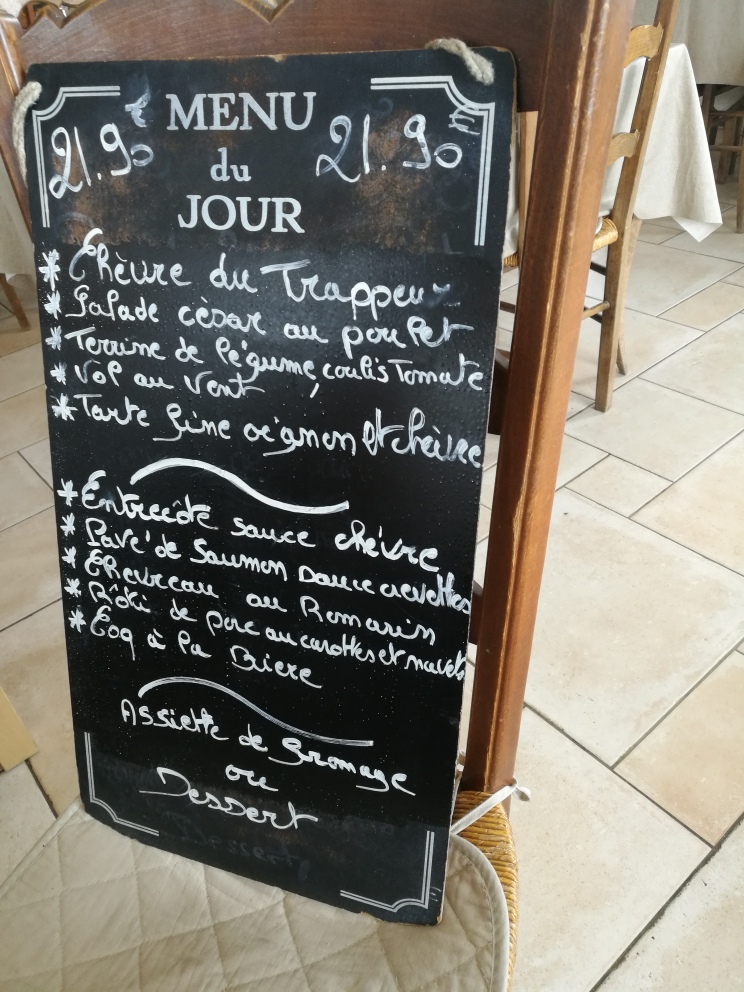 MENU
du
JOUR
21.90 €
21.90 €
* Chèvre du Trappeur
* Salade cèsar au poulet
* Terrine de légume, coulis Tomate
* Vol au Vent
* Tarte fine oignon et chèvre
* Entrecôte sauce chèvre
* Pavé de Saumon sauce crevettes
* Chevreau au Romarin
* Rôti de porc au carottes et navets
* Coq à la Biere
Assiette de fromage
ou
Dessert